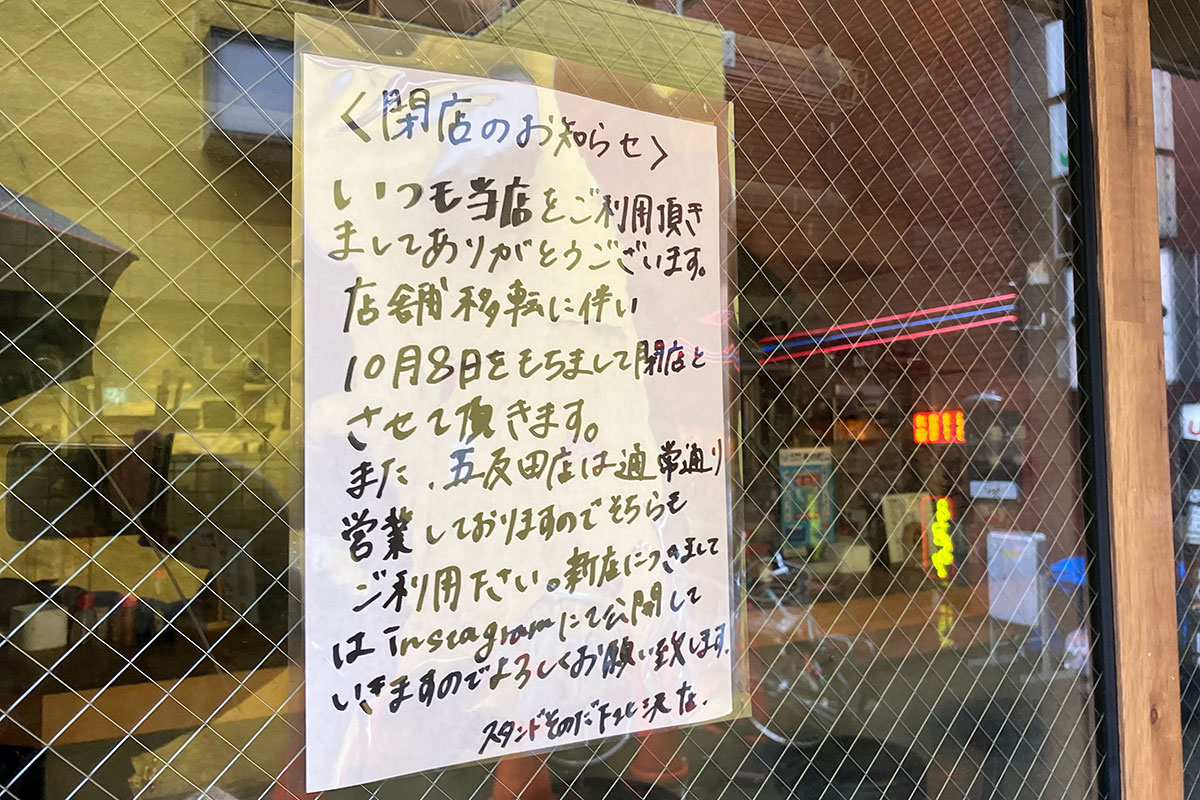 〈閉店のお知らせ〉
いつも当店をご利用頂き
ましてありがとうございます。
店舗移転に伴い
10月8日をもちまして閉店と
させて頂きます。
また、五反田店は通常通り
営業しておりますのでそちらも
ご利用ださい。新店につきまして
はInstagramにて公開して
いきますのでよろしくお願い致します。
スタンドそのだ下北沢店.